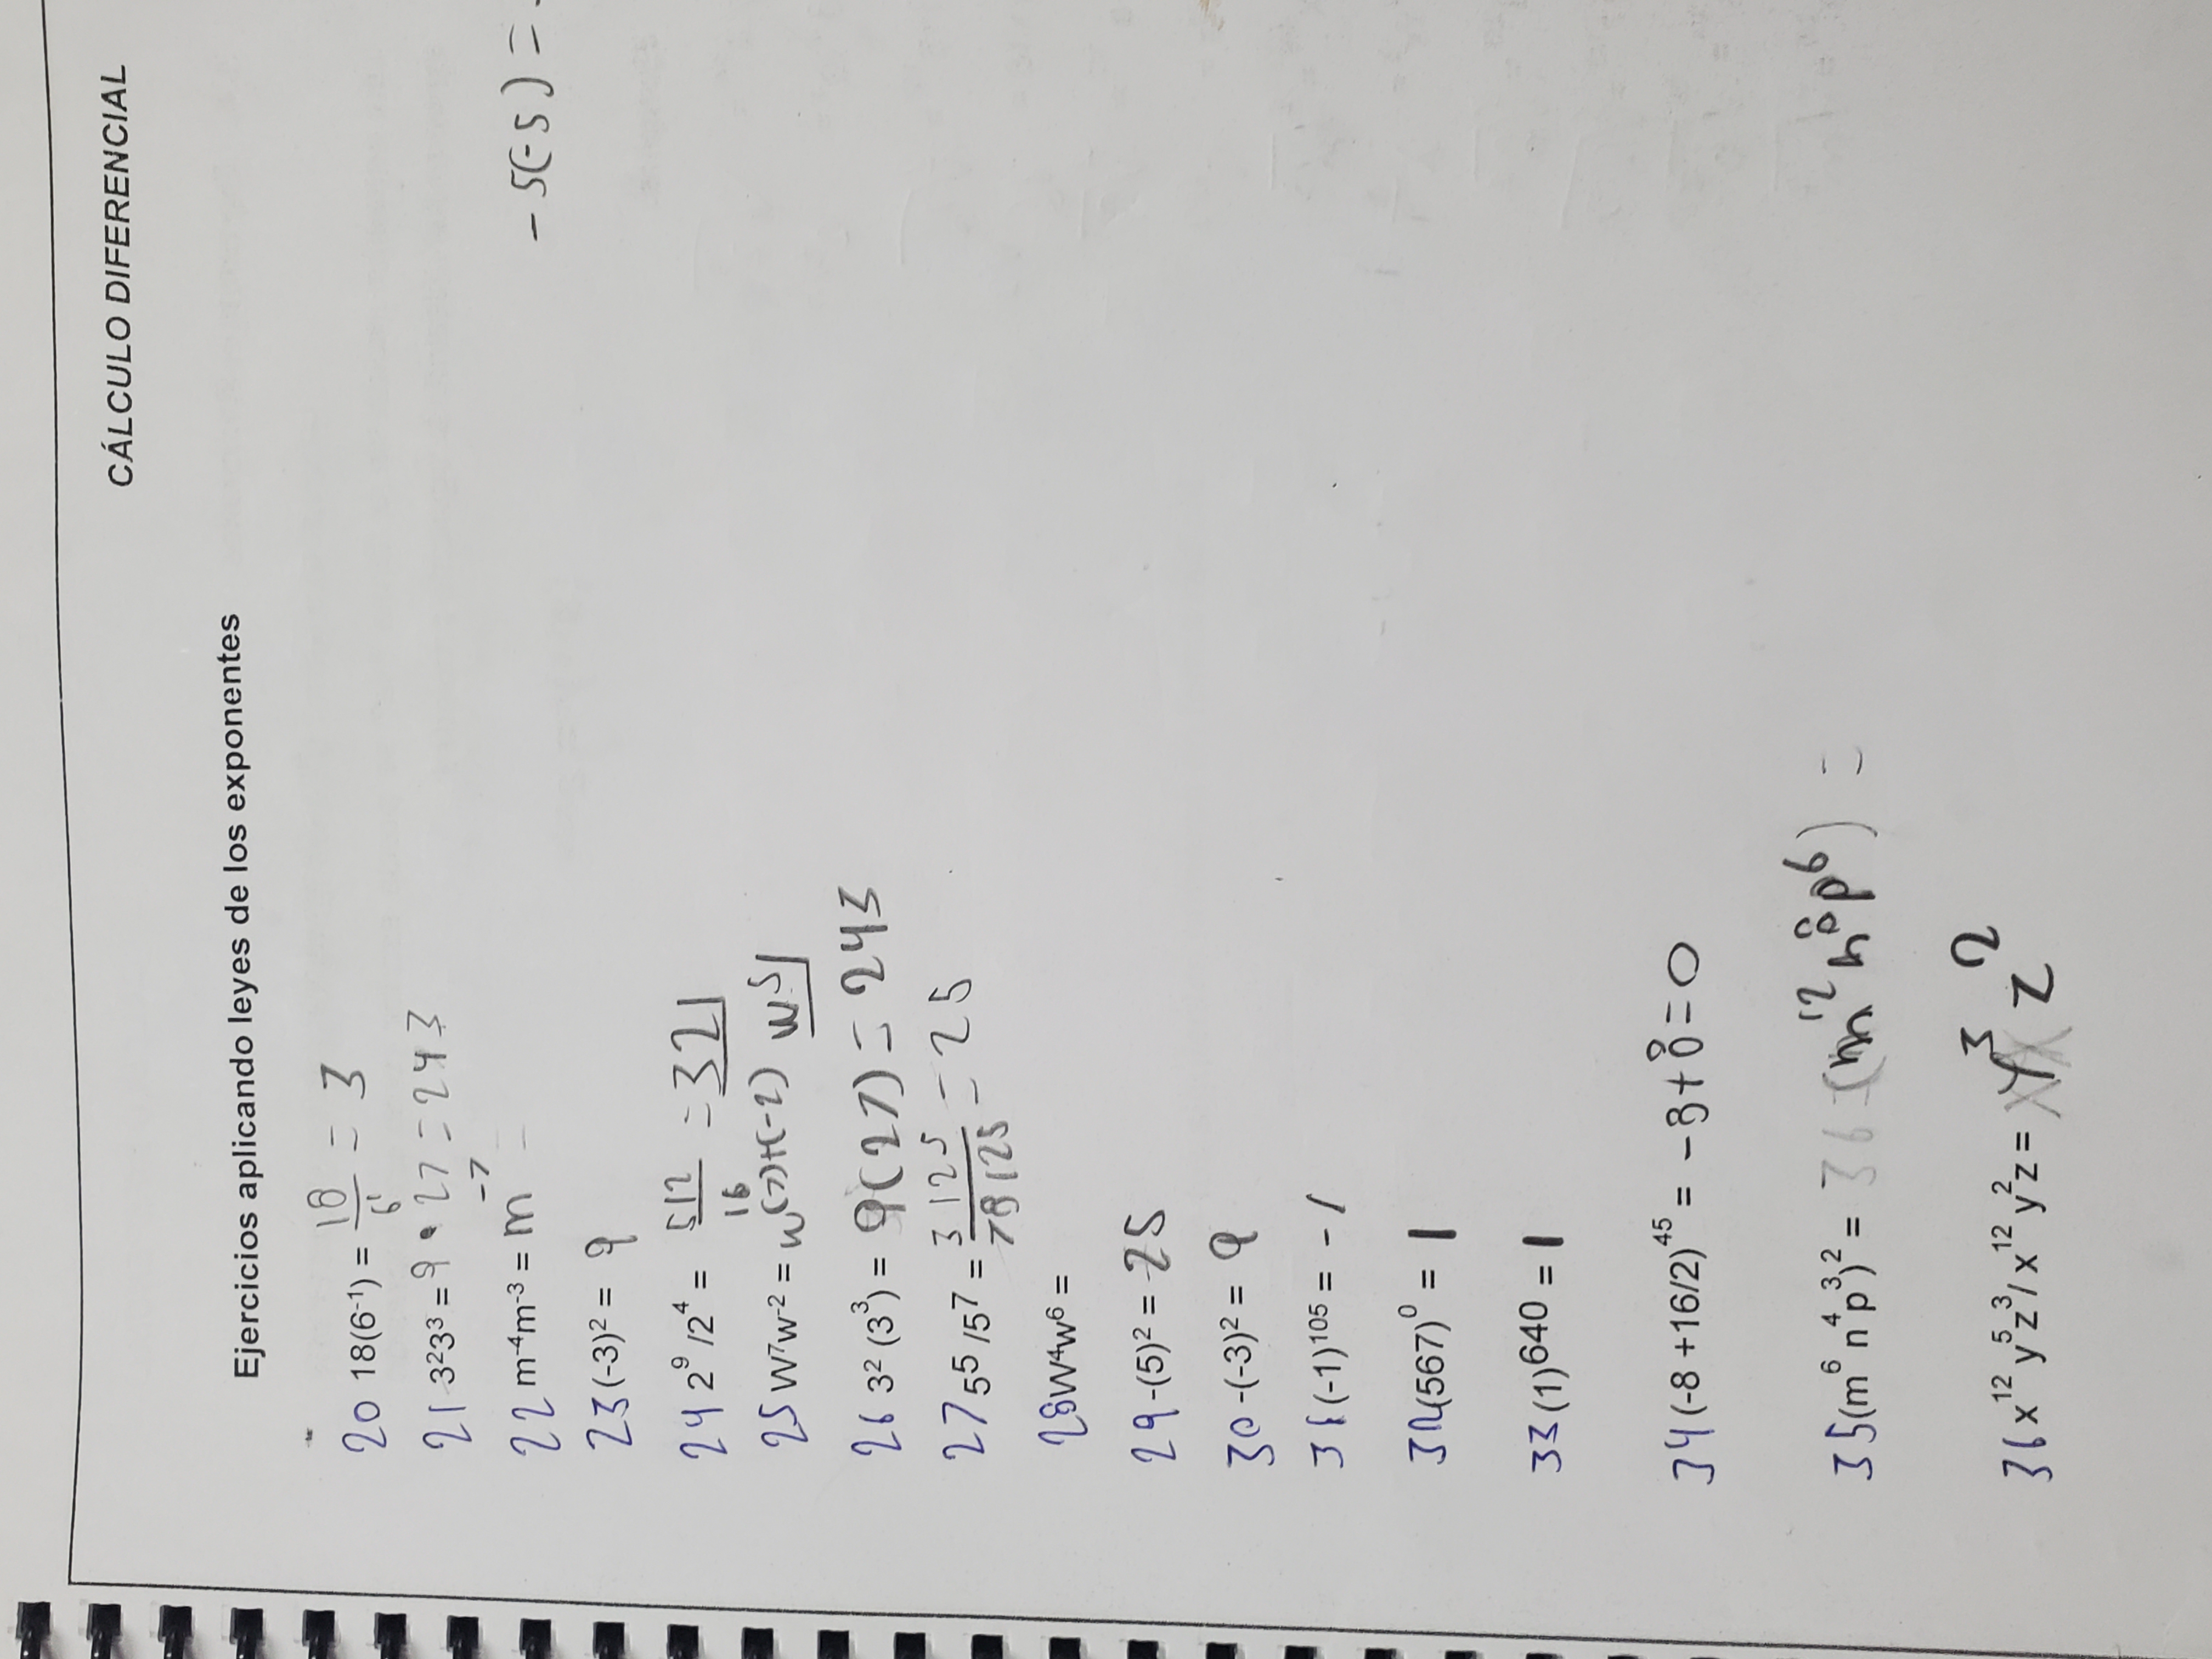 CÁLCULO DIFERENCIAL
Ejercicios aplicando leyes de los exponentes
20 18(6⁻¹) = 18/6¹ = 3
21 3²3³ = 9 • 27 = 243
22 m⁻⁴m⁻³ = m⁻⁷ - 5(-5) =
23 (-3)² = 9
24 2⁹/2⁴ = 512/16 = 32
25 W⁷w⁻² = w⁽⁷⁾⁺⁽⁻²⁾ w⁵
26 3² (3³) = 9(27) = 243
27 5⁵/5⁷ = 3125/78125 = 25
28 W⁴w⁶ =
29 -(5)² = -25
30 -(-3)² = 9
31 (-1)¹⁰⁵ = -1
32 (567)⁰ = 1
33 (1)⁶⁴⁰ = 1
34 (-8 +16/2)⁴⁵ = -8+8 = 0
35 (m⁶ n⁴ p³)² = 36 = (m¹² n⁸ p⁶) =
36 x¹² y⁵ z³/ x¹² y² z = y³ z²